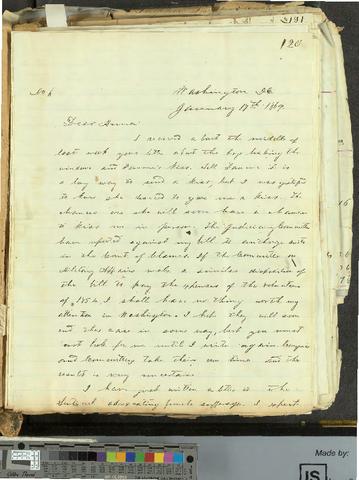 131
120
No 6
Washington DC
January 17th 1869
Dear Anna
I received about the middle of
last week your letter about the boys breaking the
window and Fannie's kiss. Tell Fannie it is
a long way to send a kiss, but I was glad
to have she desired to give me a kiss. The
chances are she will soon have a chance
to kiss me in person. The Judiciary Committee
have reported against my bill to authorize suits
in the Court of Claims. If the Committee on
Military Affairs make a similar disposition of
the bill to pay the expenses of the volunteers
of 1854, I shall have nothing worth my
attention in Washington. I hope they will soon
end the case in some way, but you must
not look for me until I write again. Congress
and Committees take their own time and the
results is very uncertain.
I have just written a letter to the
advocating female suffrage. I expect
Made by: